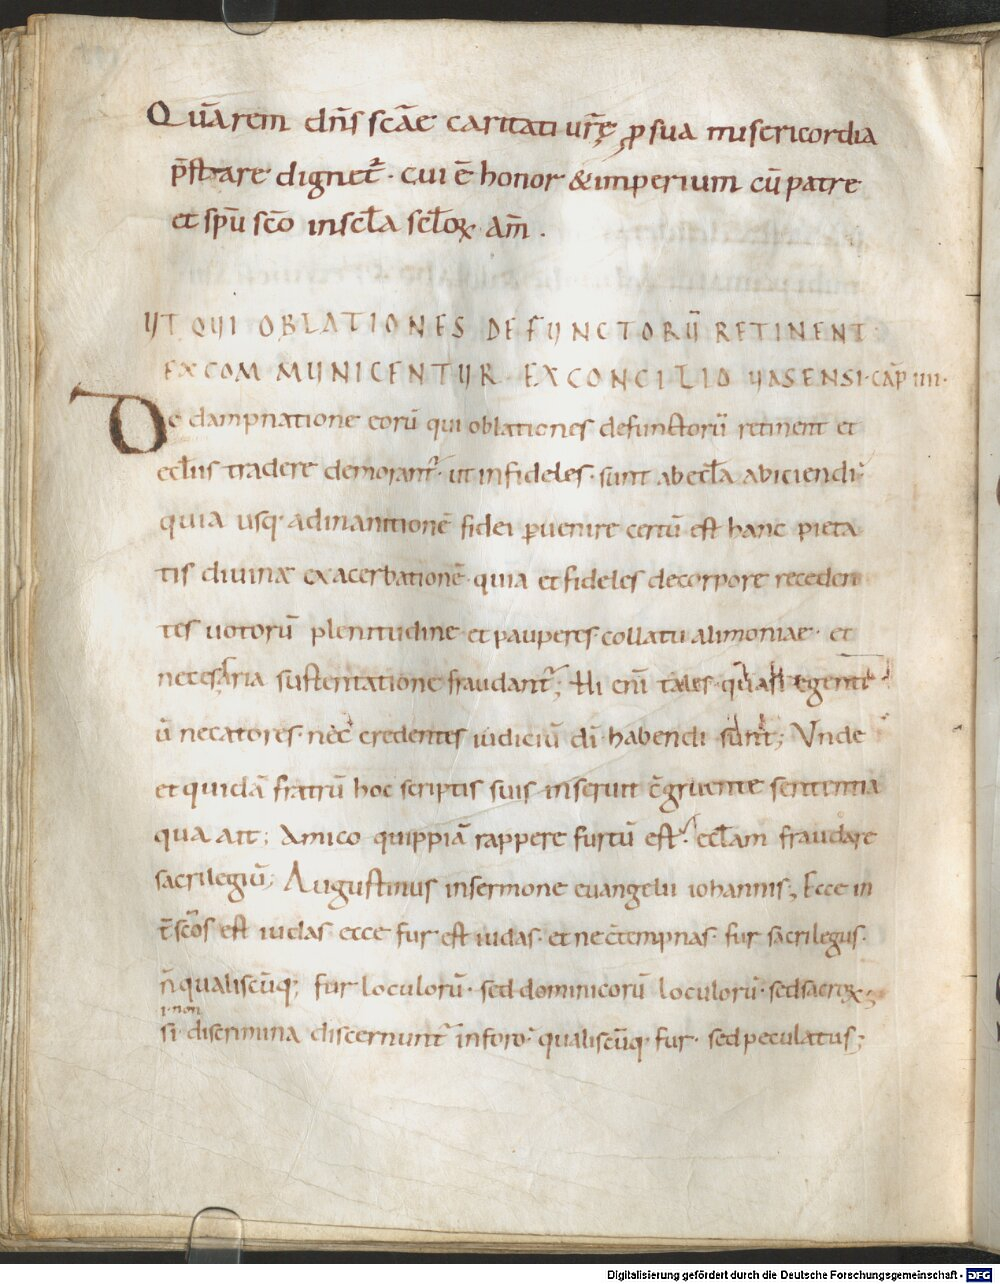 Quā rem dn̄s scāe caritati ur̄ę ꝓ sua misericordia
p̄stare dignet᷑ · cui ē honor & imperium cū patre
et sp̄u scō in sćla sćloꝝ · am̄ .
UT QUI OBLATIONES DEFUNCTORŪ RETINENT
EXCOMMUNICENTUR · EX CONCILIO UASENSI · CAP̄ IIII ·
De dampnatione eorū qui oblationes defunctorū retinent et
eccliis tradere demorant᷑ · ut infideles · sunt ab ecćla abiciendi ·
quia usq; ad inanitionē fidei ꝑuenire certū est hanc pieta
tis diuinæ exacerbationē · quia et fideles de corpore receden
tes uotorū plenitudine · et pauperes collatu alimoniae · et
necessaria sustentatione fraudant᷑; Hi eni tales · quasi egenti
ū necatores · nec credentes iudiciū dī habendi sunt; Unde
et quidā fratrū hoc scriptis suis inseruit c̄gruente sententia
qua ait; Amico quippiā rappere furtū est · ecćlam fraudare
sacrilegiū; Augustinus in sermone euangelii iohannis; Ecce in
t̄ scōs est iudas ecce fur est iudas · et ne c̄tempnas · fur sacrilegus ·
n̄ qualiscūq; fur loculorū · sed dominicorū loculorū · sed sacroꝝ;
i· non
si discrimina discernunt᷑ in foro · qualiscūq; fur · sed peculatus;
Digitalisierung gefördert durch die Deutsche Forschungsgemeinschaft - DFG